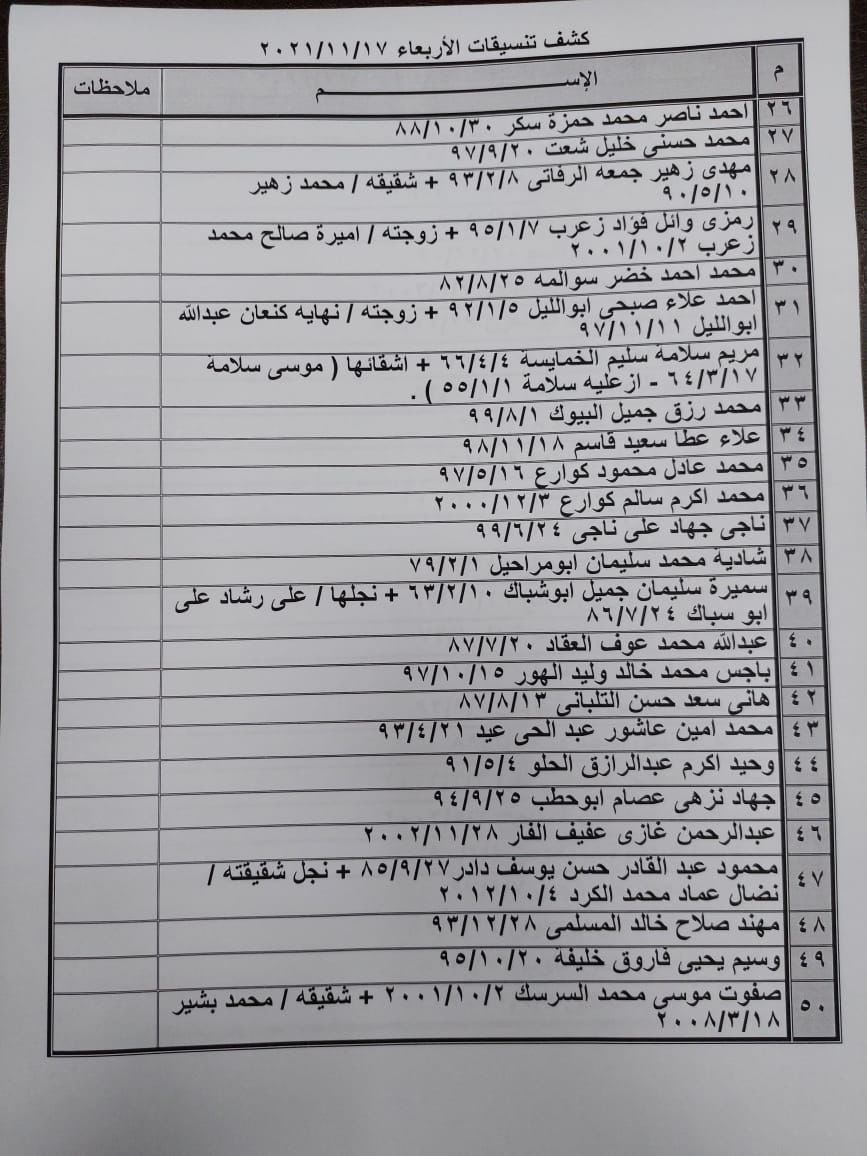 كشف تنسيقات الأربعاء ٢٠٢١/١١/١٧
م الإســـــــــــــــــــــــــــــم ملاحظات
٢٦ احمد ناصر محمد حمزة سكر ٨٨/١٠/٣٠
٢٧ محمد حسنى خليل شعت ٩٧/٩/٢٠
٢٨ مهدى زهير جمعه الرفاتى ٩٣/٢/٨ + شقيقه / محمد زهير
٩٠/٥/١٠
٢٩ رمزى وائل فؤاد زعرب ٩٥/١/٧ + زوجته / اميرة صالح محمد
زعرب ٢٠٠١/١٠/٢
٣٠ محمد احمد خضر سوالمه ٨٢/٨/٢٥
٣١ احمد علاء صبحى ابوالليل ٩٢/١/٥ + زوجته / نهايه كنعان عبدالله
ابوالليل ٩٧/١١/١١
٣٢ مريم سلامة سليم الخمايسة ٦٦/٤/٤ + اشقائها ( موسى سلامة
٦٤/٣/١٧ - ازعليه سلامة ٥٥/١/١ ) .
٣٣ محمد رزق جميل البيوك ٩٩/٨/١
٣٤ علاء عطا سعيد قاسم ٩٨/١١/١٨
٣٥ محمد عادل محمود كوارع ٩٧/٥/١٦
٣٦ محمد اكرم سالم كوارع ٢٠٠٠/١٢/٣
٣٧ ناجى جهاد على ناجى ٩٩/٦/٢٤
٣٨ شادية محمد سليمان ابومراحيل ٧٩/٢/١
٣٩ سميرة سليمان جميل ابوشباك ٦٣/٢/١٠ + نجلها / على رشاد على
ابو سباك ٨٦/٧/٢٤
٤٠ عبدالله محمد عوف العقاد ٨٧/٧/٢٠
٤١ باجس محمد خالد وليد الهور ٩٧/١٠/١٥
٤٢ هانى سعد حسن التلبانى ٨٧/٨/١٣
٤٣ محمد امين عاشور عبد الحى عيد ٩٣/٤/٢١
٤٤ وحيد اكرم عبدالرازق الحلو ٩١/٥/٤
٤٥ جهاد نزهى عصام ابوحطب ٩٤/٩/٢٥
٤٦ عبدالرحمن غازى عفيف الفار ٢٠٠٢/١١/٢٨
٤٧ محمود عبد القادر حسن يوسف دادر٨٥/٩/٢٧ + نجل شقيقته /
نضال عماد محمد الكرد ٢٠١٢/١٠/٤
٤٨ مهند صلاح خالد المسلمى ٩٣/١٢/٢٨
٤٩ وسيم يحيى فاروق خليفة ٩٥/١٠/٢٠
٥٠ صفوت موسى محمد السرسك ٢٠٠١/١٠/٢ + شقيقه / محمد بشير
٢٠٠٨/٣/١٨